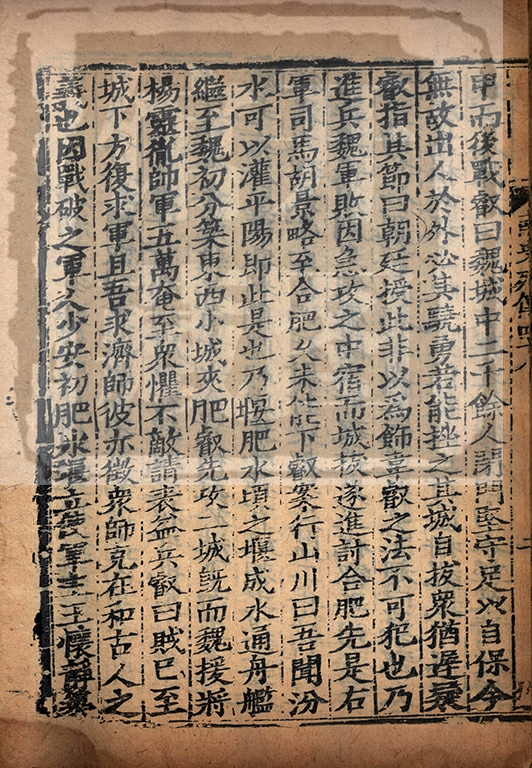 甲而後戰叡曰魏城中二千餘人閉門堅守足以自保今
無故出人於外必其驍勇若能挫之其城自拔衆猶遲疑
叡指其節曰朝廷授此非以爲飾韋叡之法不可犯也乃
進兵魏軍敗因急攻之中宿而城拔遂進討合肥先是右
軍司馬胡景略至合肥久未能下叡案行山川曰吾聞汾
水可以灌平陽即此是也乃堰肥水頃之堰成水通舟艦
繼至魏初分築東西小城夾肥叡先攻二城旣而魏援將
楊靈胤帥軍五萬奄至衆懼不敵請表益兵叡曰賊已至
城下方復求軍且吾求濟師彼亦徵衆師克在和古人之
義也因戰破之軍人少安初肥水堰立使軍主王懷靜築